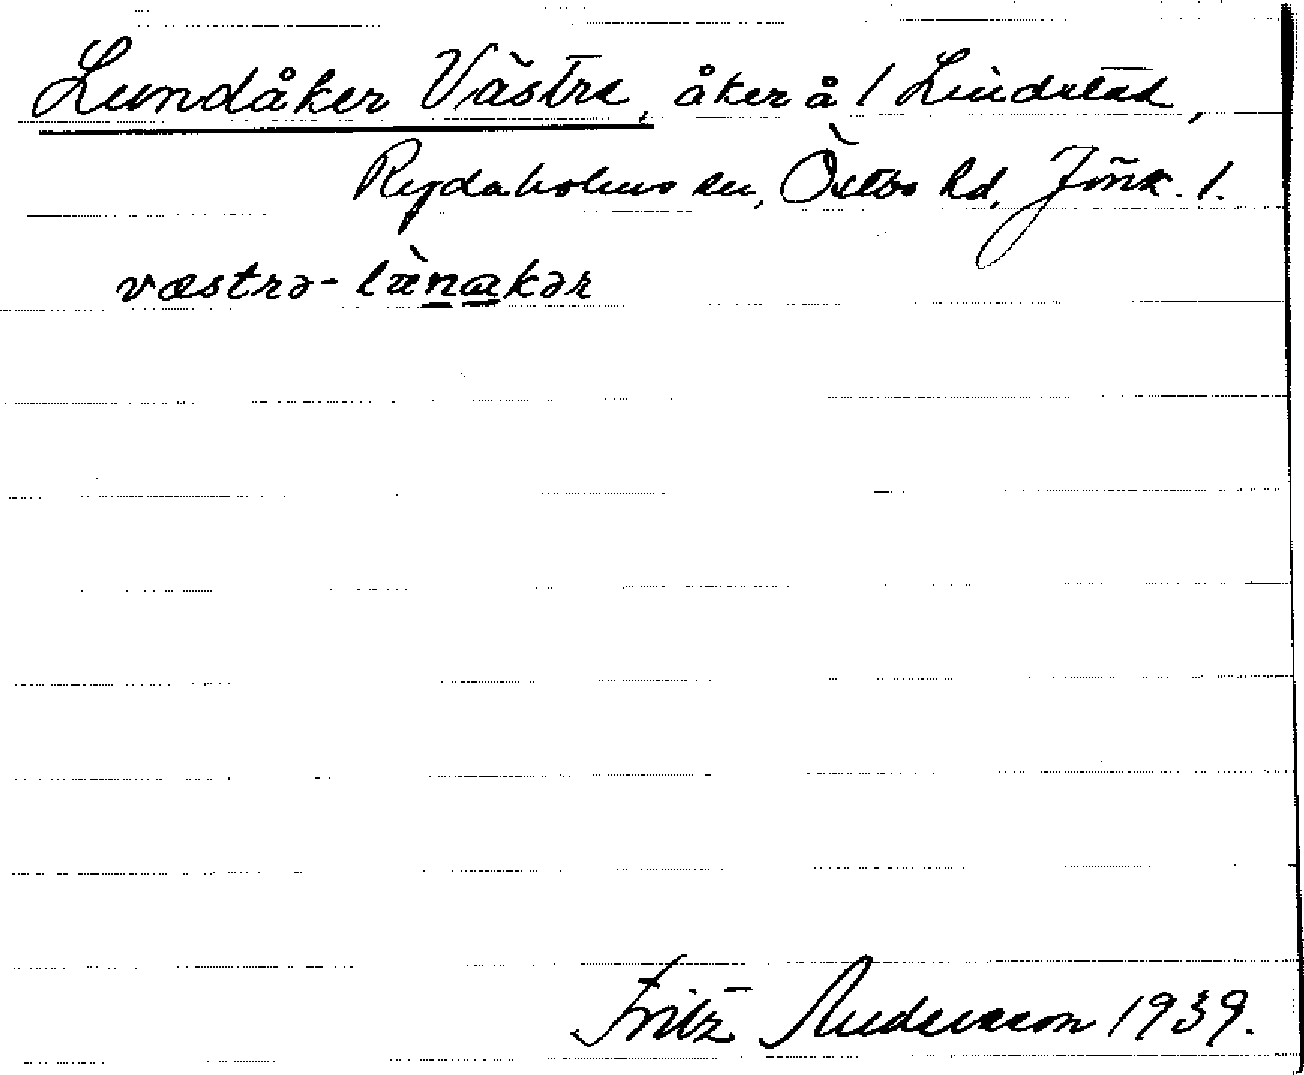 Lundåker Västra, åker å 1 Lindstad,
Rydaholms sn, Östbo hd, Jönk. l.
væstrə-lænakər
Fritz Andersson 1939.